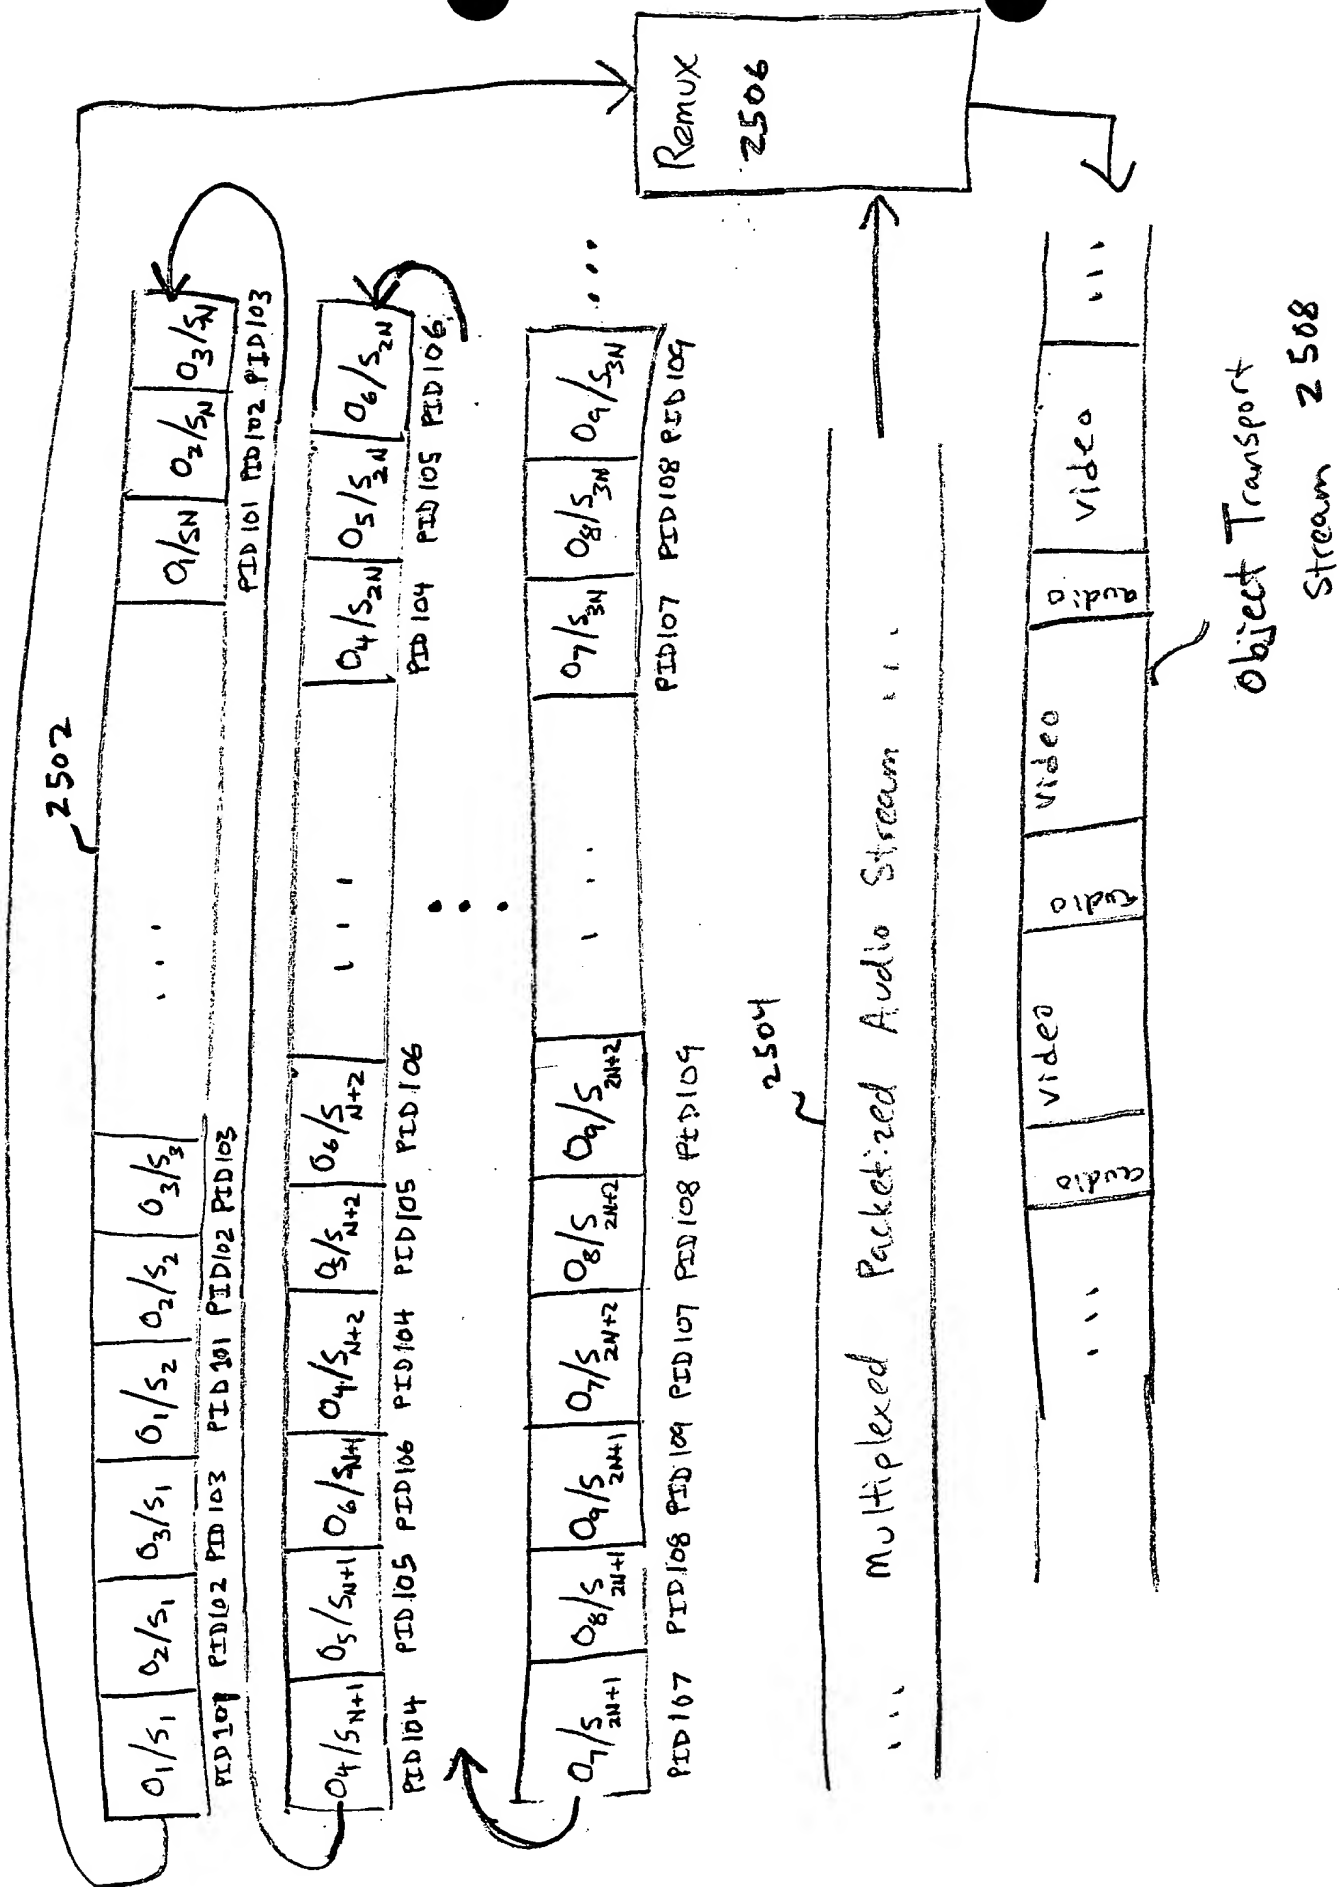 2502
O₁/S₁ O₂/S₁ O₃/S₁ O₁/S₂ O₂/S₂ O₃/S₃ ... O₁/SN O₂/SN O₃/SN
PID101 PID102 PID103 PID101 PID102 PID103 PID101 PID102 PID103
O₄/S_N+1 O₅/S_N+1 O₆/S_N+1 O₄/S_N+2 O₃/S_N+2 O₆/S_N+2 ... O₄/S_2N O₅/S_2N O₆/S_2N
PID104 PID105 PID106 PID104 PID105 PID106 PID104 PID105 PID106
...
O₇/S_2N+1 O₈/S_2N+1 O₉/S_2N+1 O₇/S_2N+2 O₈/S_2N+2 O₉/S_2N+2 ... O₇/S_3N O₈/S_3N O₉/S_3N ...
PID107 PID108 PID109 PID107 PID108 PID109 PID107 PID108 PID109
Remux
2506
2504
... Multiplexed Packetized Audio Stream ...
... audio video audio video audio video ...
Object Transport
Stream 2508